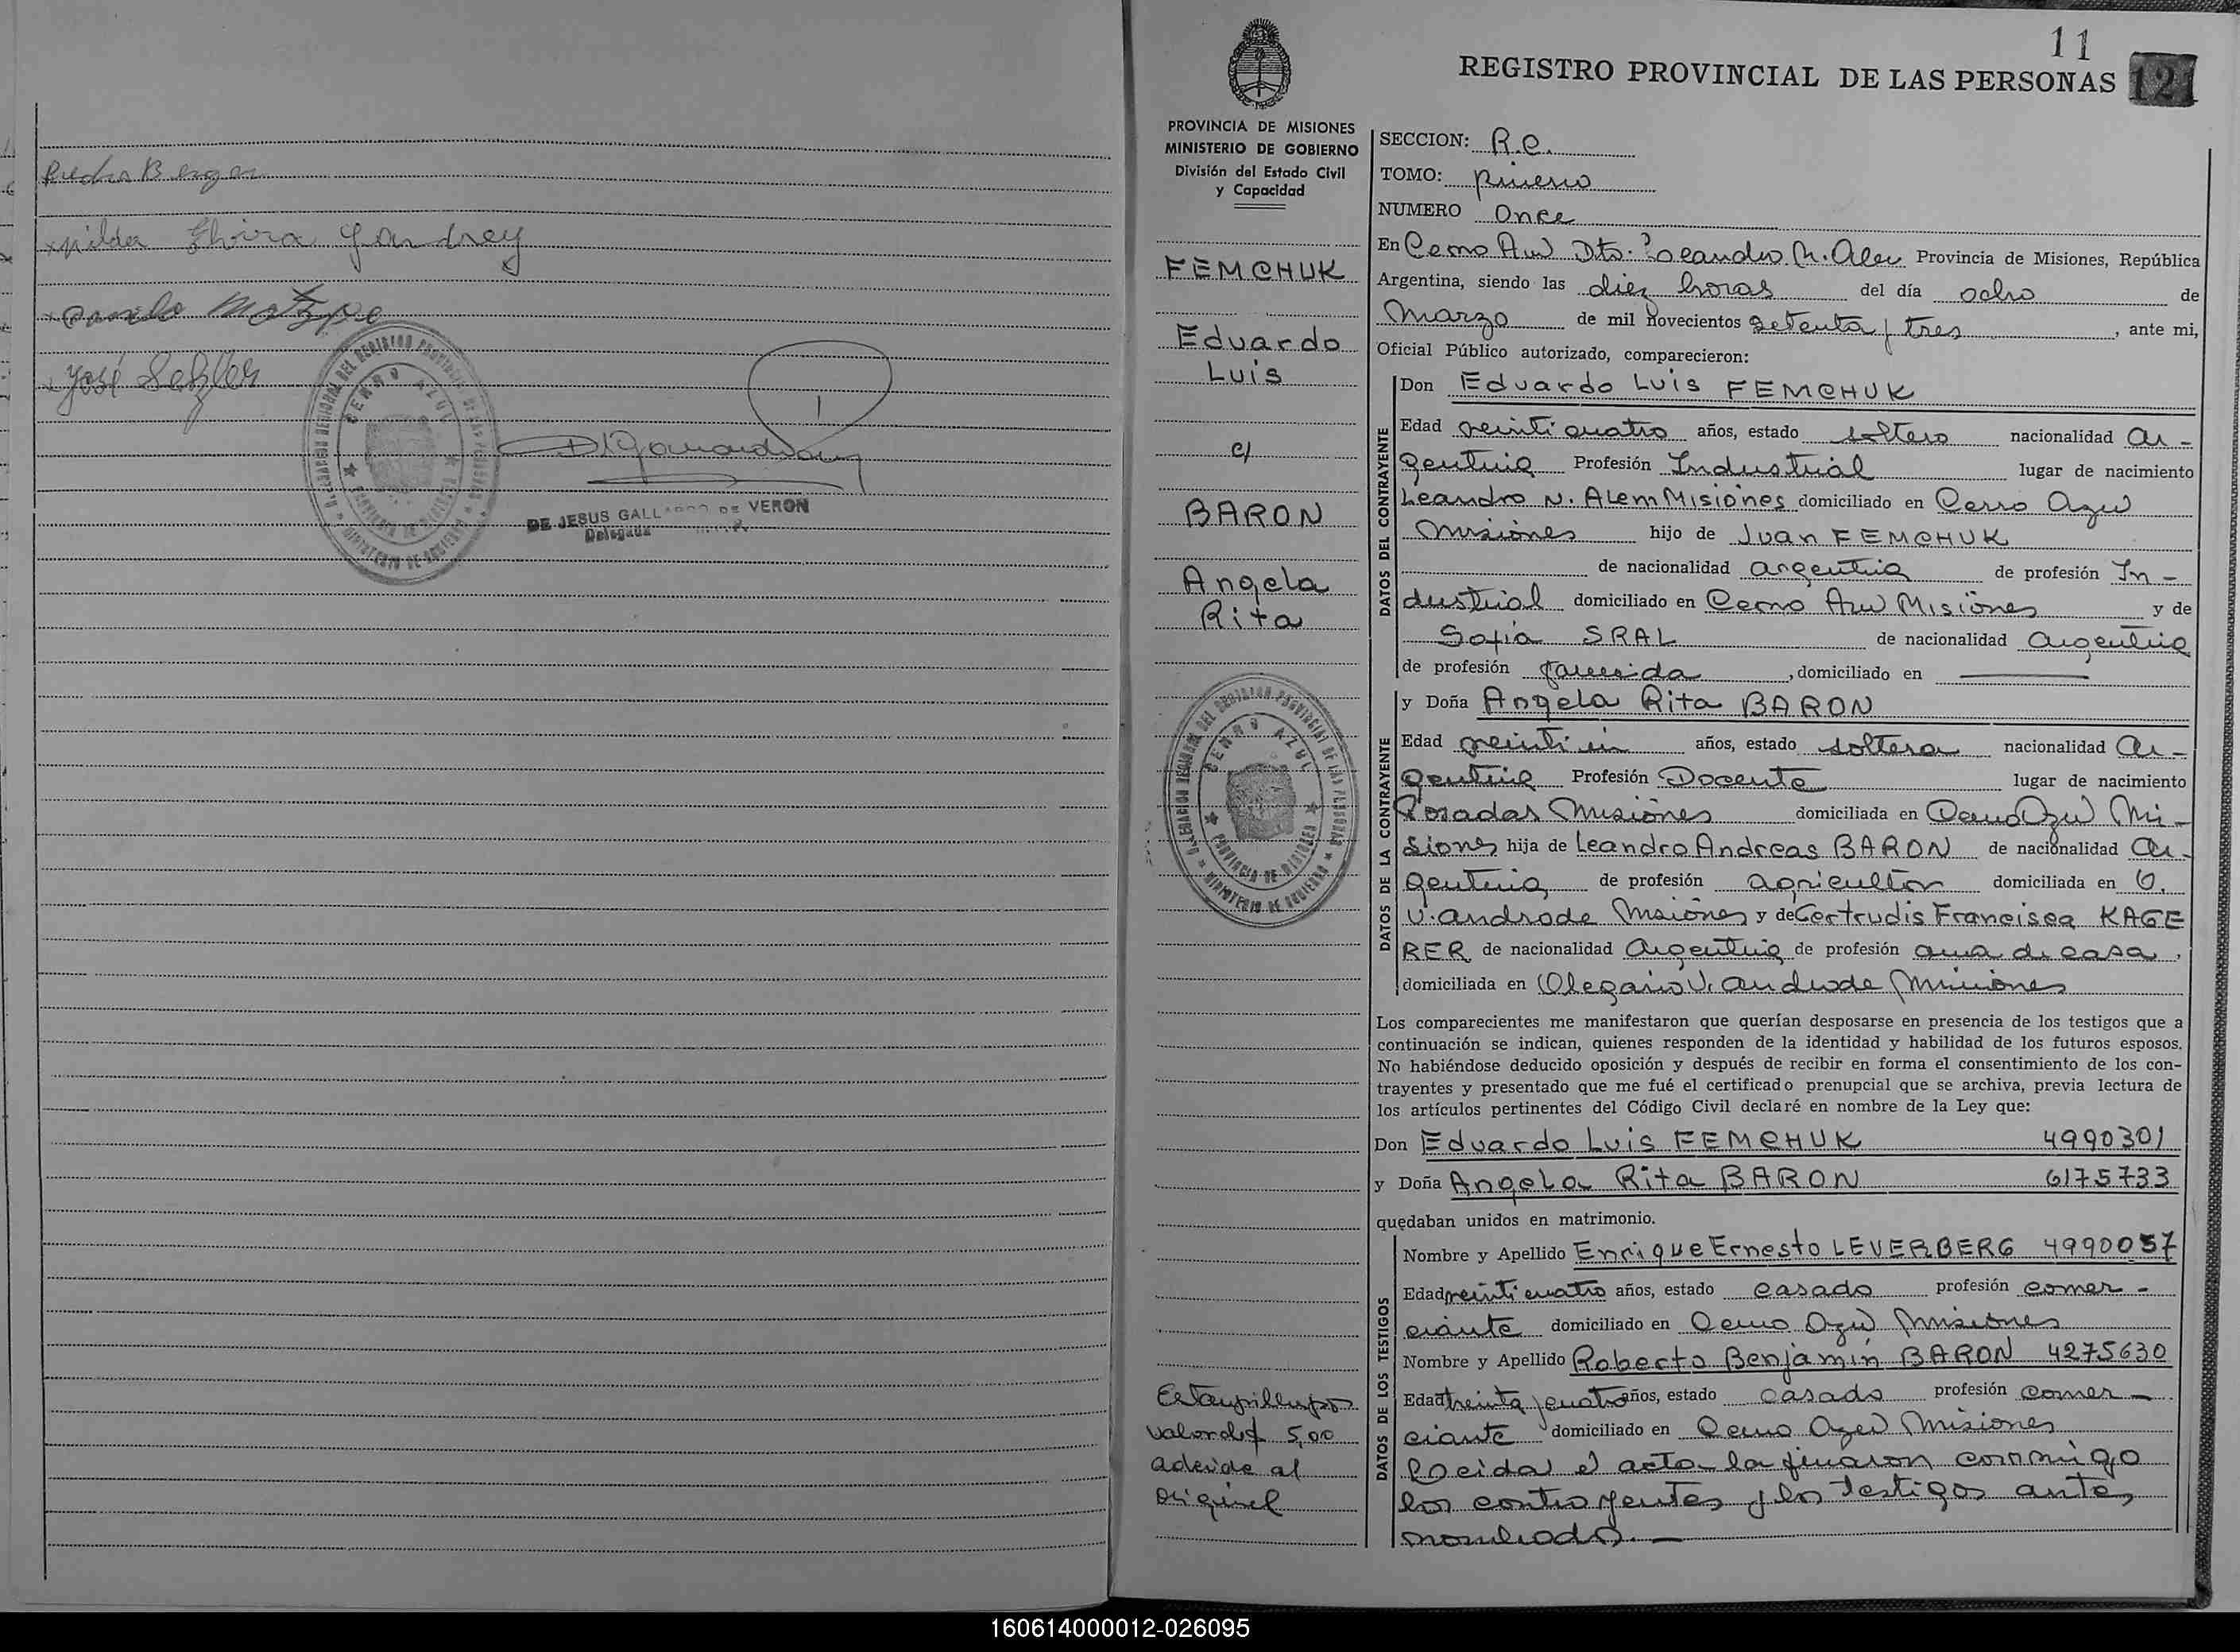 Pedro Berger
Hilda Elvira Yandrey
José Sehler
DELEGACION REGIONAL DEL REGISTRO PROVINCIAL DE LAS PERSONAS
CERRO AZUL
PROVINCIA DE MISIONES
MINISTERIO DE GOBIERNO
DE JESUS GALLARDO DE VERON
Delegada
11
REGISTRO PROVINCIAL DE LAS PERSONAS 121
PROVINCIA DE MISIONES
MINISTERIO DE GOBIERNO
División del Estado Civil
y Capacidad
FEMCHUK
Eduardo
Luis
c/
BARON
Angela
Rita
DELEGACION REGIONAL DEL REGISTRO PROVINCIAL DE LAS PERSONAS
CERRO AZUL
PROVINCIA DE MISIONES
MINISTERIO DE GOBIERNO
Estampilla por
valor de $ 5,00
adherida al
original
SECCION: R.C.
TOMO: primero
NUMERO Once
En Cerro Azul Dto. Leandro N. Alem Provincia de Misiones, República
Argentina, siendo las diez horas del día ocho de
Marzo de mil novecientos setenta y tres, ante mi,
Oficial Público autorizado, comparecieron:
DATOS DEL CONTRAYENTE
Don Eduardo Luis FEMCHUK
Edad veinticuatro años, estado soltero nacionalidad ar-
gentina Profesión Industrial lugar de nacimiento
Leandro N. Alem Misiones domiciliado en Cerro Azul
Misiones hijo de Juan FEMCHUK
de nacionalidad argentina de profesión In-
dustrial domiciliado en Cerro Azul Misiones y de
Sofia SRAL de nacionalidad argentina
de profesión fallecida, domiciliado en ———
DATOS DE LA CONTRAYENTE
y Doña Angela Rita BARON
Edad veintiun años, estado soltera nacionalidad Ar-
gentina Profesión Docente lugar de nacimiento
Posadas Misiones domiciliada en Cerro Azul Mi-
siones hija de Leandro Andreas BARON de nacionalidad Ar-
gentina de profesión agricultor domiciliada en O.
V. Andrade Misiones y de Gertrudis Francisca KAGE
RER de nacionalidad Argentina de profesión ama de casa,
domiciliada en Olegario V. Andrade Misiones
Los comparecientes me manifestaron que querían desposarse en presencia de los testigos que a
continuación se indican, quienes responden de la identidad y habilidad de los futuros esposos.
No habiéndose deducido oposición y después de recibir en forma el consentimiento de los con-
trayentes y presentado que me fué el certificado prenupcial que se archiva, previa lectura de
los artículos pertinentes del Código Civil declaré en nombre de la Ley que:
Don Eduardo Luis FEMCHUK 4990301
y Doña Angela Rita BARON 6175733
quedaban unidos en matrimonio.
DATOS DE LOS TESTIGOS
Nombre y Apellido Enrique Ernesto LEVERBERG 4990057
Edad veinticuatro años, estado casado profesión comer-
ciante domiciliado en Cerro Azul Misiones
Nombre y Apellido Roberto Benjamin BARON 4275630
Edad treinta y cuatro años, estado casado profesión comer-
ciante domiciliado en Cerro Azul Misiones
Leida el acta la firmaron conmigo
los contrayentes y los testigos antes
nombrados.—
160614000012-026095